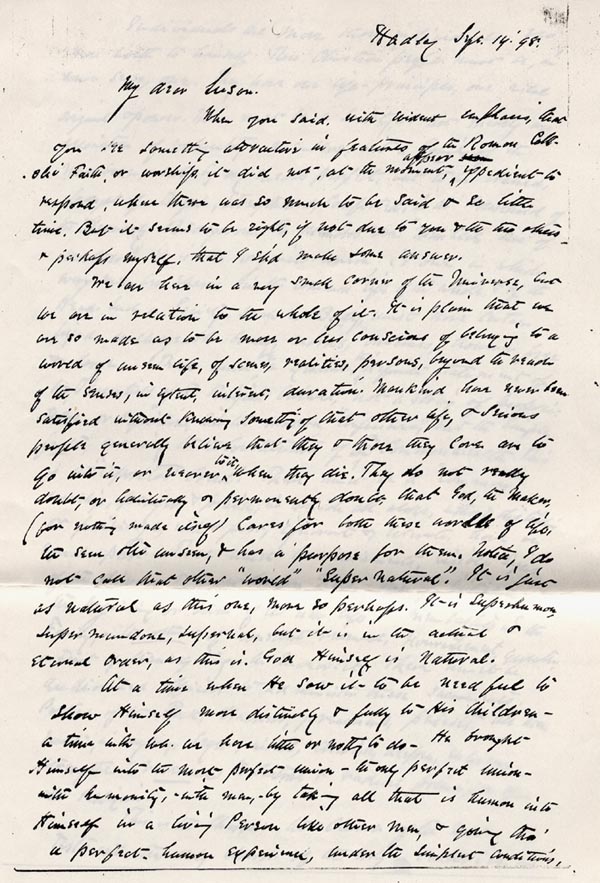 Hadley Sept. 14. '98.
My dear Susan.
When you said, with evident emphasis, that
you see something attractive in features of the Roman Cath-
olic Faith, or worship, it did not, at the moment, appear expedient to
respond, where there was so much to be said & so little
time. But it seems to be right, if not due to you & the two others
& perhaps myself, that I sh'd make some answer.
We are here in a very small corner of the Universe, but
we are in relation to the whole of it. It is plain that we
are so made as to be more or less conscious of belonging to a
world of unseen life, of scenes, realities, persons, beyond the reach
of the senses, in extent, interest, duration. Mankind have never been
satisfied without knowing something of that other life, & serious
people generally believe that they & those they love are to
go into it, or nearer to it, when they die. They do not really
doubt, or habitually or permanently doubt, that God, the Maker,
(for nothing made itself) cares for both these worlds of life,
the seen & the unseen, & has a purpose for them. Notice, I do
not call that other "world" "Supernatural". It is just
as natural as this one, more so perhaps. It is Superhuman,
supermundane, supernal, but it is in the actual &
eternal order, as this is. God Himself is Natural.
At a time when He saw it to be needful to
show Himself more distinctly & fully to His children –
a time with wh. we have little or nothing to do – He brought
Himself into the most perfect union – the only perfect union –
with humanity, – with man, – by taking all that is human into
Himself in a living Person like other men, & going thro'
a perfect human experience, under the simplest conditions,